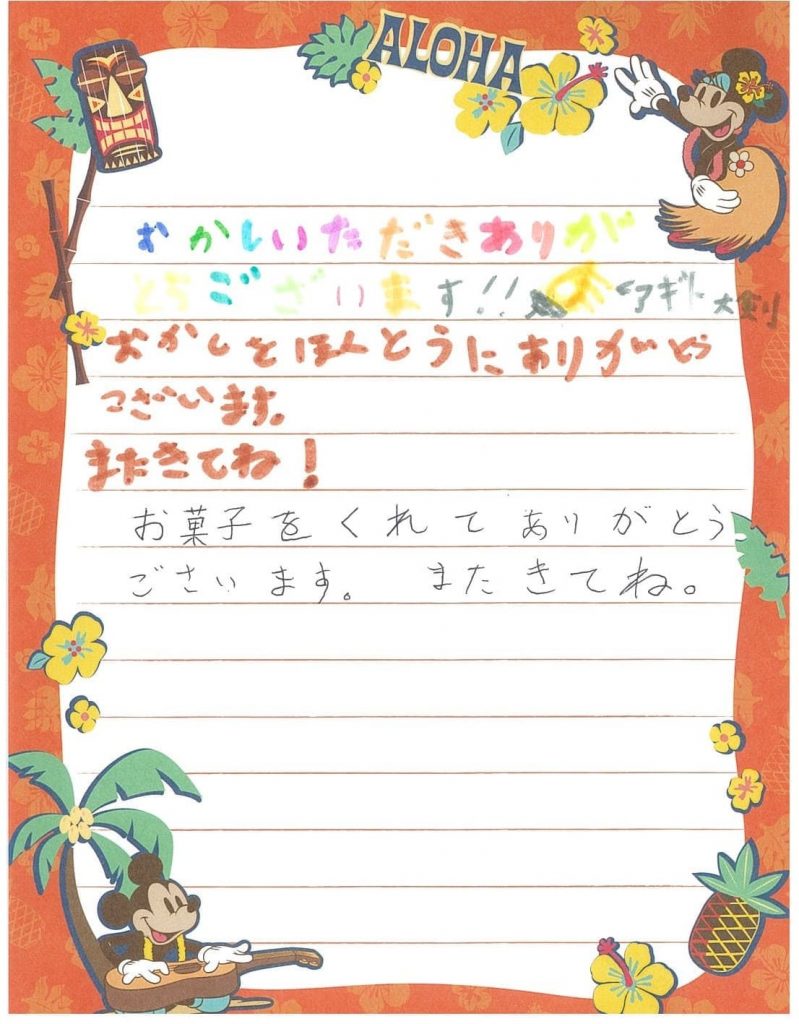 ALOHA
おかしいただきありが
とうございます!! <アギト大剣
おかしをほんとうにありがとう
ございます。
またきてね!
お菓子をくれてありがとう
ございます。 またきてね。